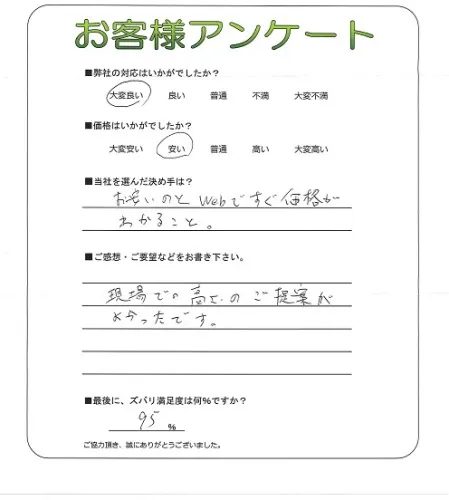 お客様アンケート
■弊社の対応はいかがでしたか？
大変良い 良い 普通 不満 大変不満
■価格はいかがでしたか？
大変安い 安い 普通 高い 大変高い
■当社を選んだ決め手は？
お安いのと Webですぐ価格が
わかること。
■ご感想・ご要望などをお書き下さい。
現場での高さのご提案が
よかったです。
■最後に、ズバリ満足度は何%ですか？
95 %
ご協力頂き、誠にありがとうございました。